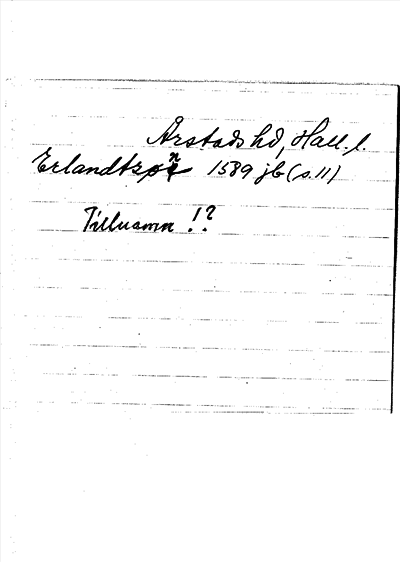 Årstads hd, Hall. l.
Erlandtzøn 1589 jb (s. 11)
Tillnamn !?